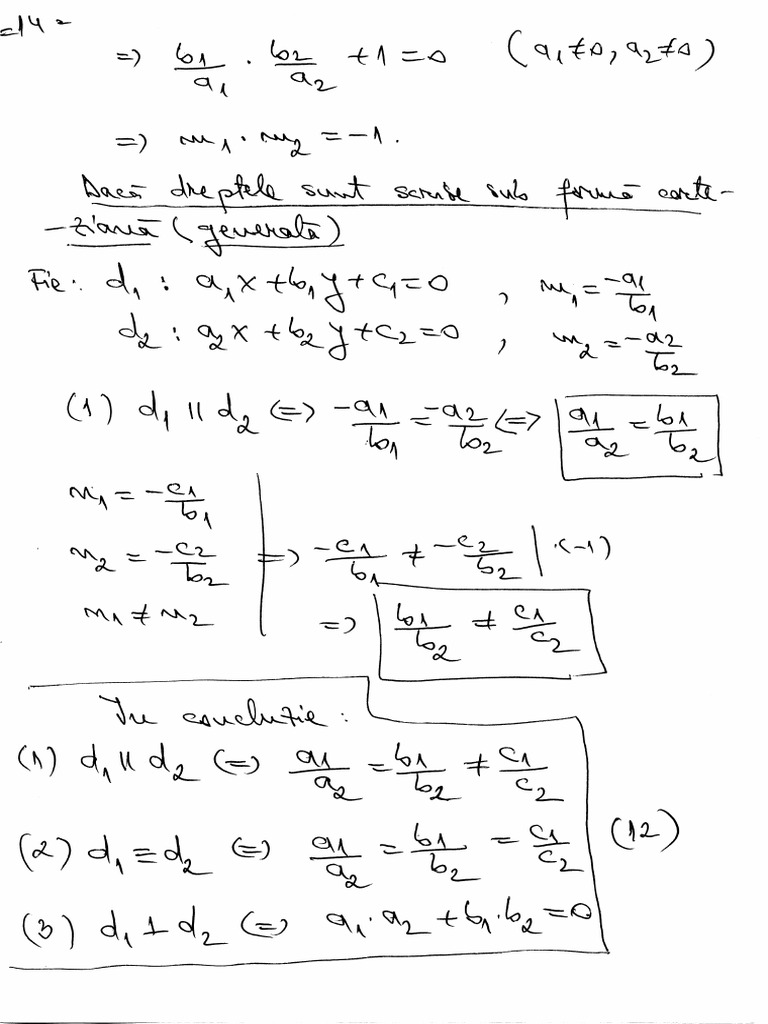 =14=
=> b1/a1 · b2/a2 + 1 = 0 (a1≠0, a2≠0)
=> m1 · m2 = -1.
Dacă dreptele sunt scrise sub formă carte-
-ziană (generală)
Fie: d1 : a1x + b1y + c1 = 0 , m1 = -a1/b1
d2 : a2x + b2y + c2 = 0 , m2 = -a2/b2
(1) d1 ∥ d2 <=> -a1/b1 = -a2/b2 <=> a1/a2 = b1/b2
n1 = -c1/b1
n2 = -c2/b2 => -c1/b1 ≠ -c2/b2 | ·(-1)
n1 ≠ n2 => b1/b2 ≠ c1/c2
În concluzie:
(1) d1 ∥ d2 <=> a1/a2 = b1/b2 ≠ c1/c2
(2) d1 ≡ d2 <=> a1/a2 = b1/b2 = c1/c2 (12)
(3) d1 ⊥ d2 <=> a1·a2 + b1·b2 = 0